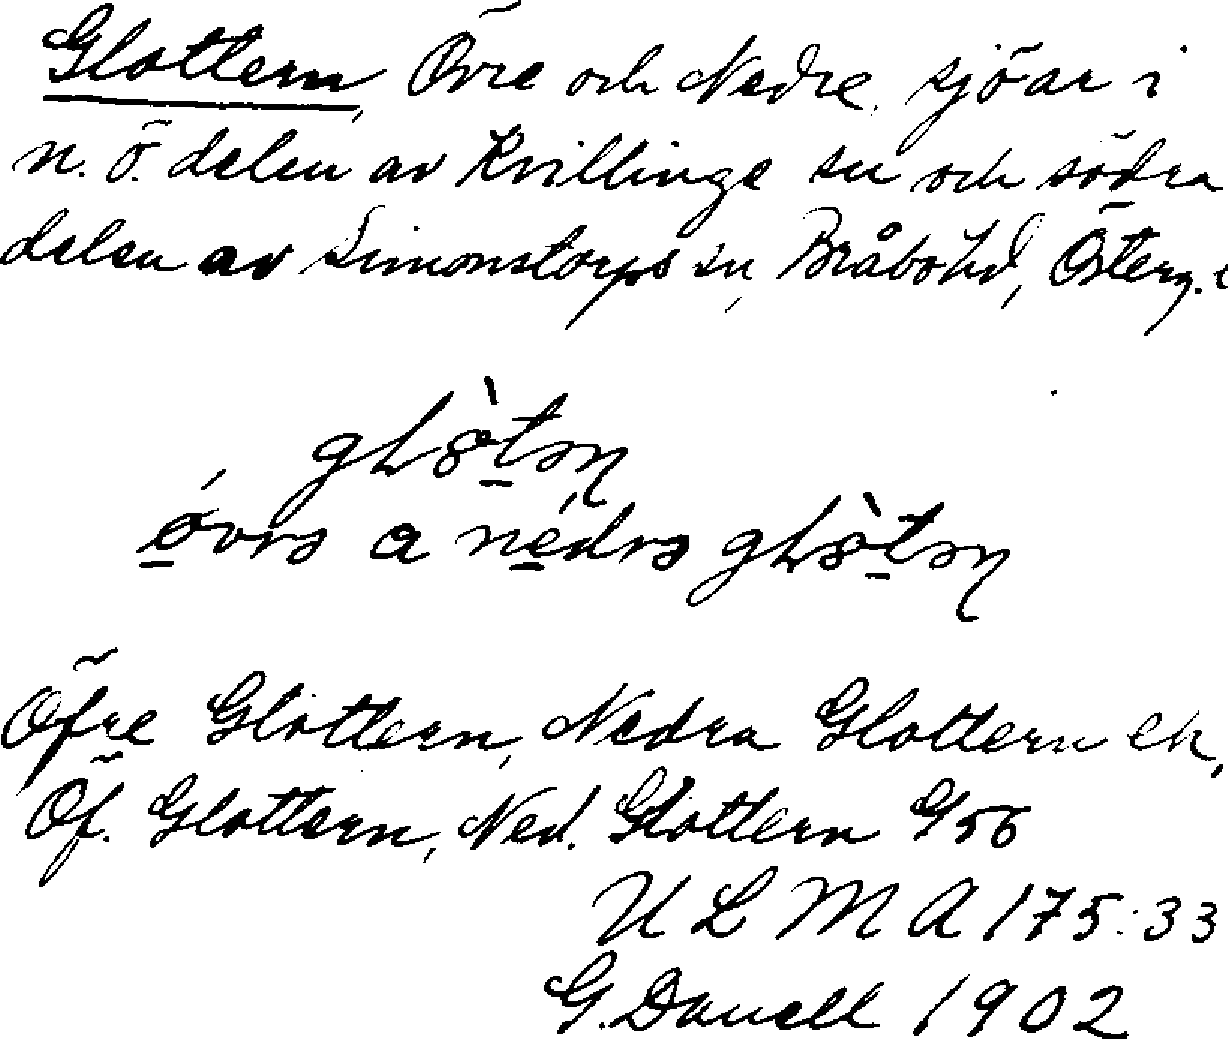 Glottern, Övre och Nedre, sjöar i
n.ö. delen av Kvillinge sn och södra
delen av Simonstorps sn, Bråbo hd, Österg. 
a
Öfre Glottern, Nedra Glottern ek,
Öf. Glottern, Ned. Glottern G/56
ULMA 175:33
G. Danell 1902